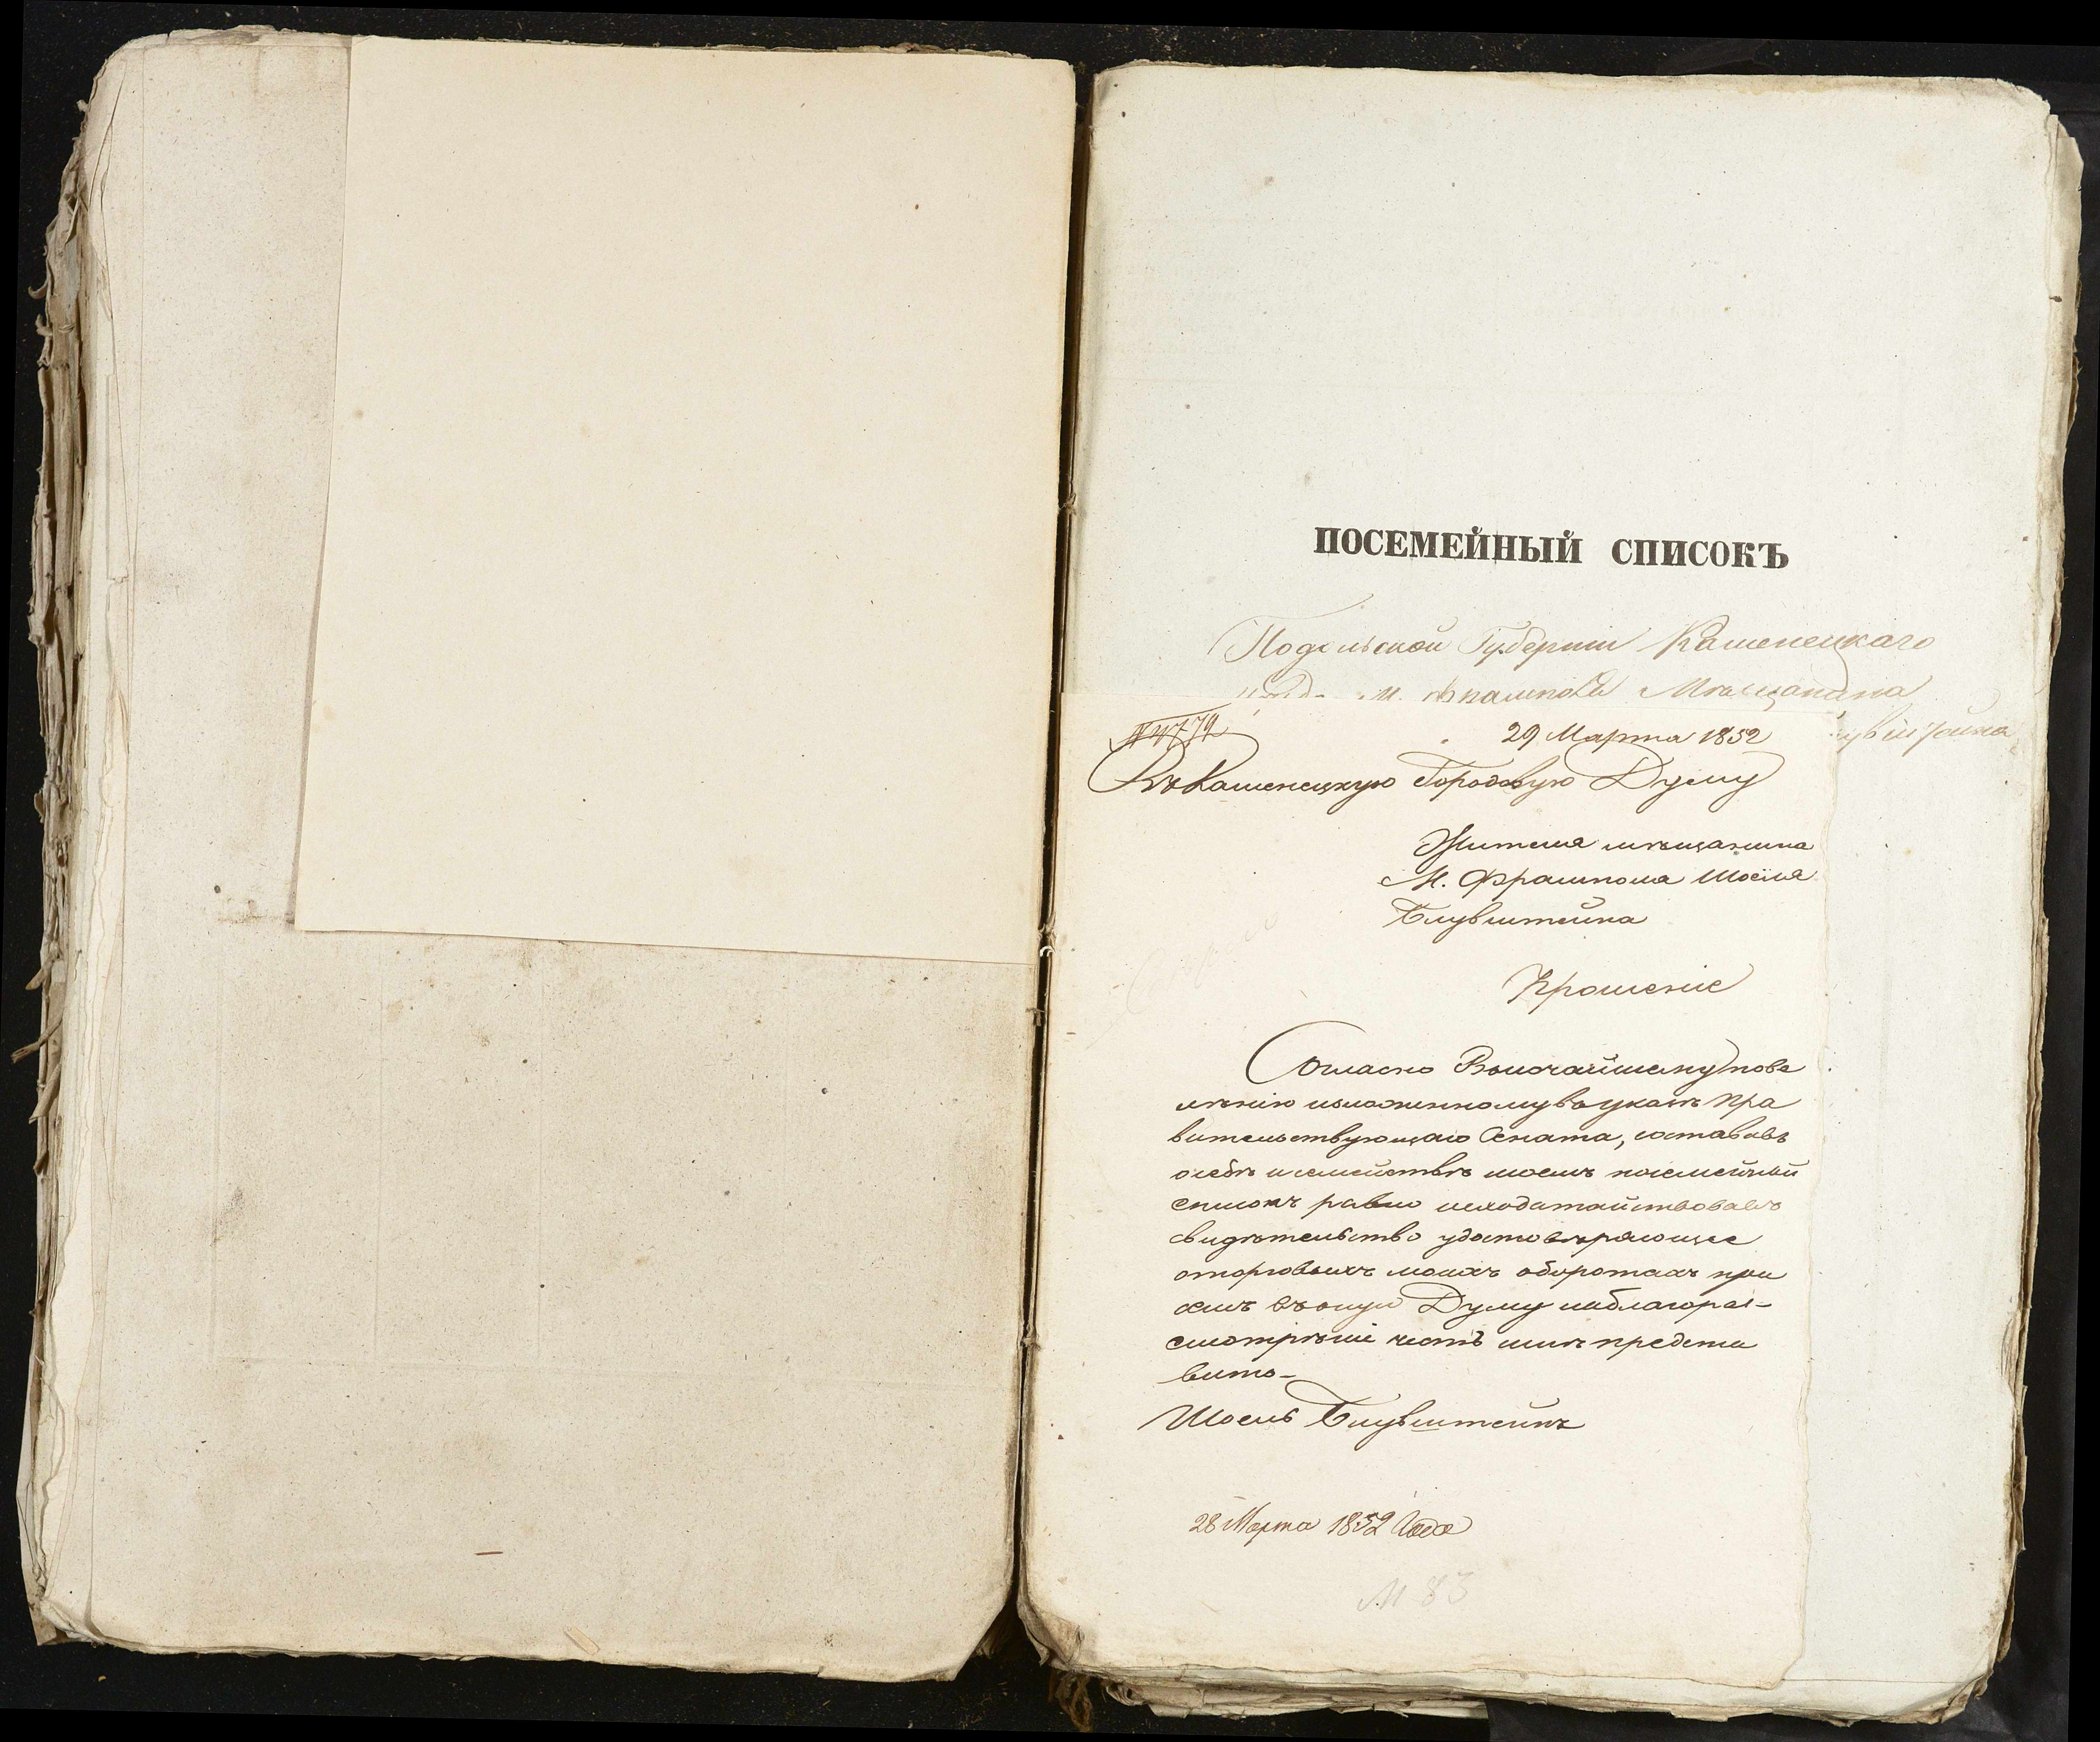 ПОСЕМЕЙНЫЙ СПИСОКЪ
Подольской Губерніи Каменецкаго
М. Фрампола Мѣщанина
№ 4779
29 Марта 1852
Въ Каменецкую Городовую Думу
Жителя мѣщанина
М. Франпола Шоеля
Блувштейна
Прошеніе
Согласно Высочайшему пове
лѣнію изложенному въ указѣ Пра
вительствующаго Сената, составивъ
о себѣ и семействѣ моемъ посемейный
списокъ равно исходатайствовавъ
свидѣтельство удостовѣряющее
о торговыхъ моихъ оборотахъ при
семъ въ оную Думу на благорас-
смотрѣніе честь имѣю предста
вить-
Шоель Блувштейнъ
28 Марта 1852 Года
№ 83